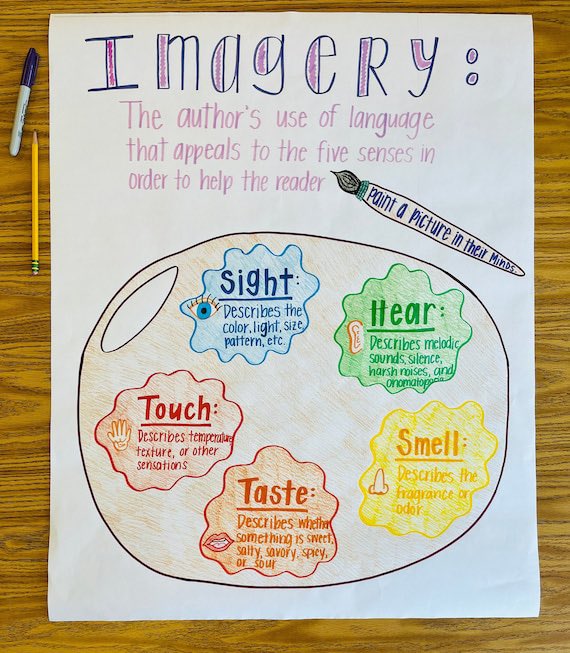 Imagery:
The author's use of language
that appeals to the five senses in
order to help the reader
paint a picture in their minds.
Sight:
Describes the
color, light, size,
pattern, etc.
Hear:
Describes melodic
sounds, silence,
harsh noises, and
onomatopoeia
Touch:
Describes temperature,
texture, or other
sensations
Smell:
Describes the
fragrance or
odor.
Taste:
Describes whether
something is sweet,
salty, savory, spicy,
or sour
Sharpie